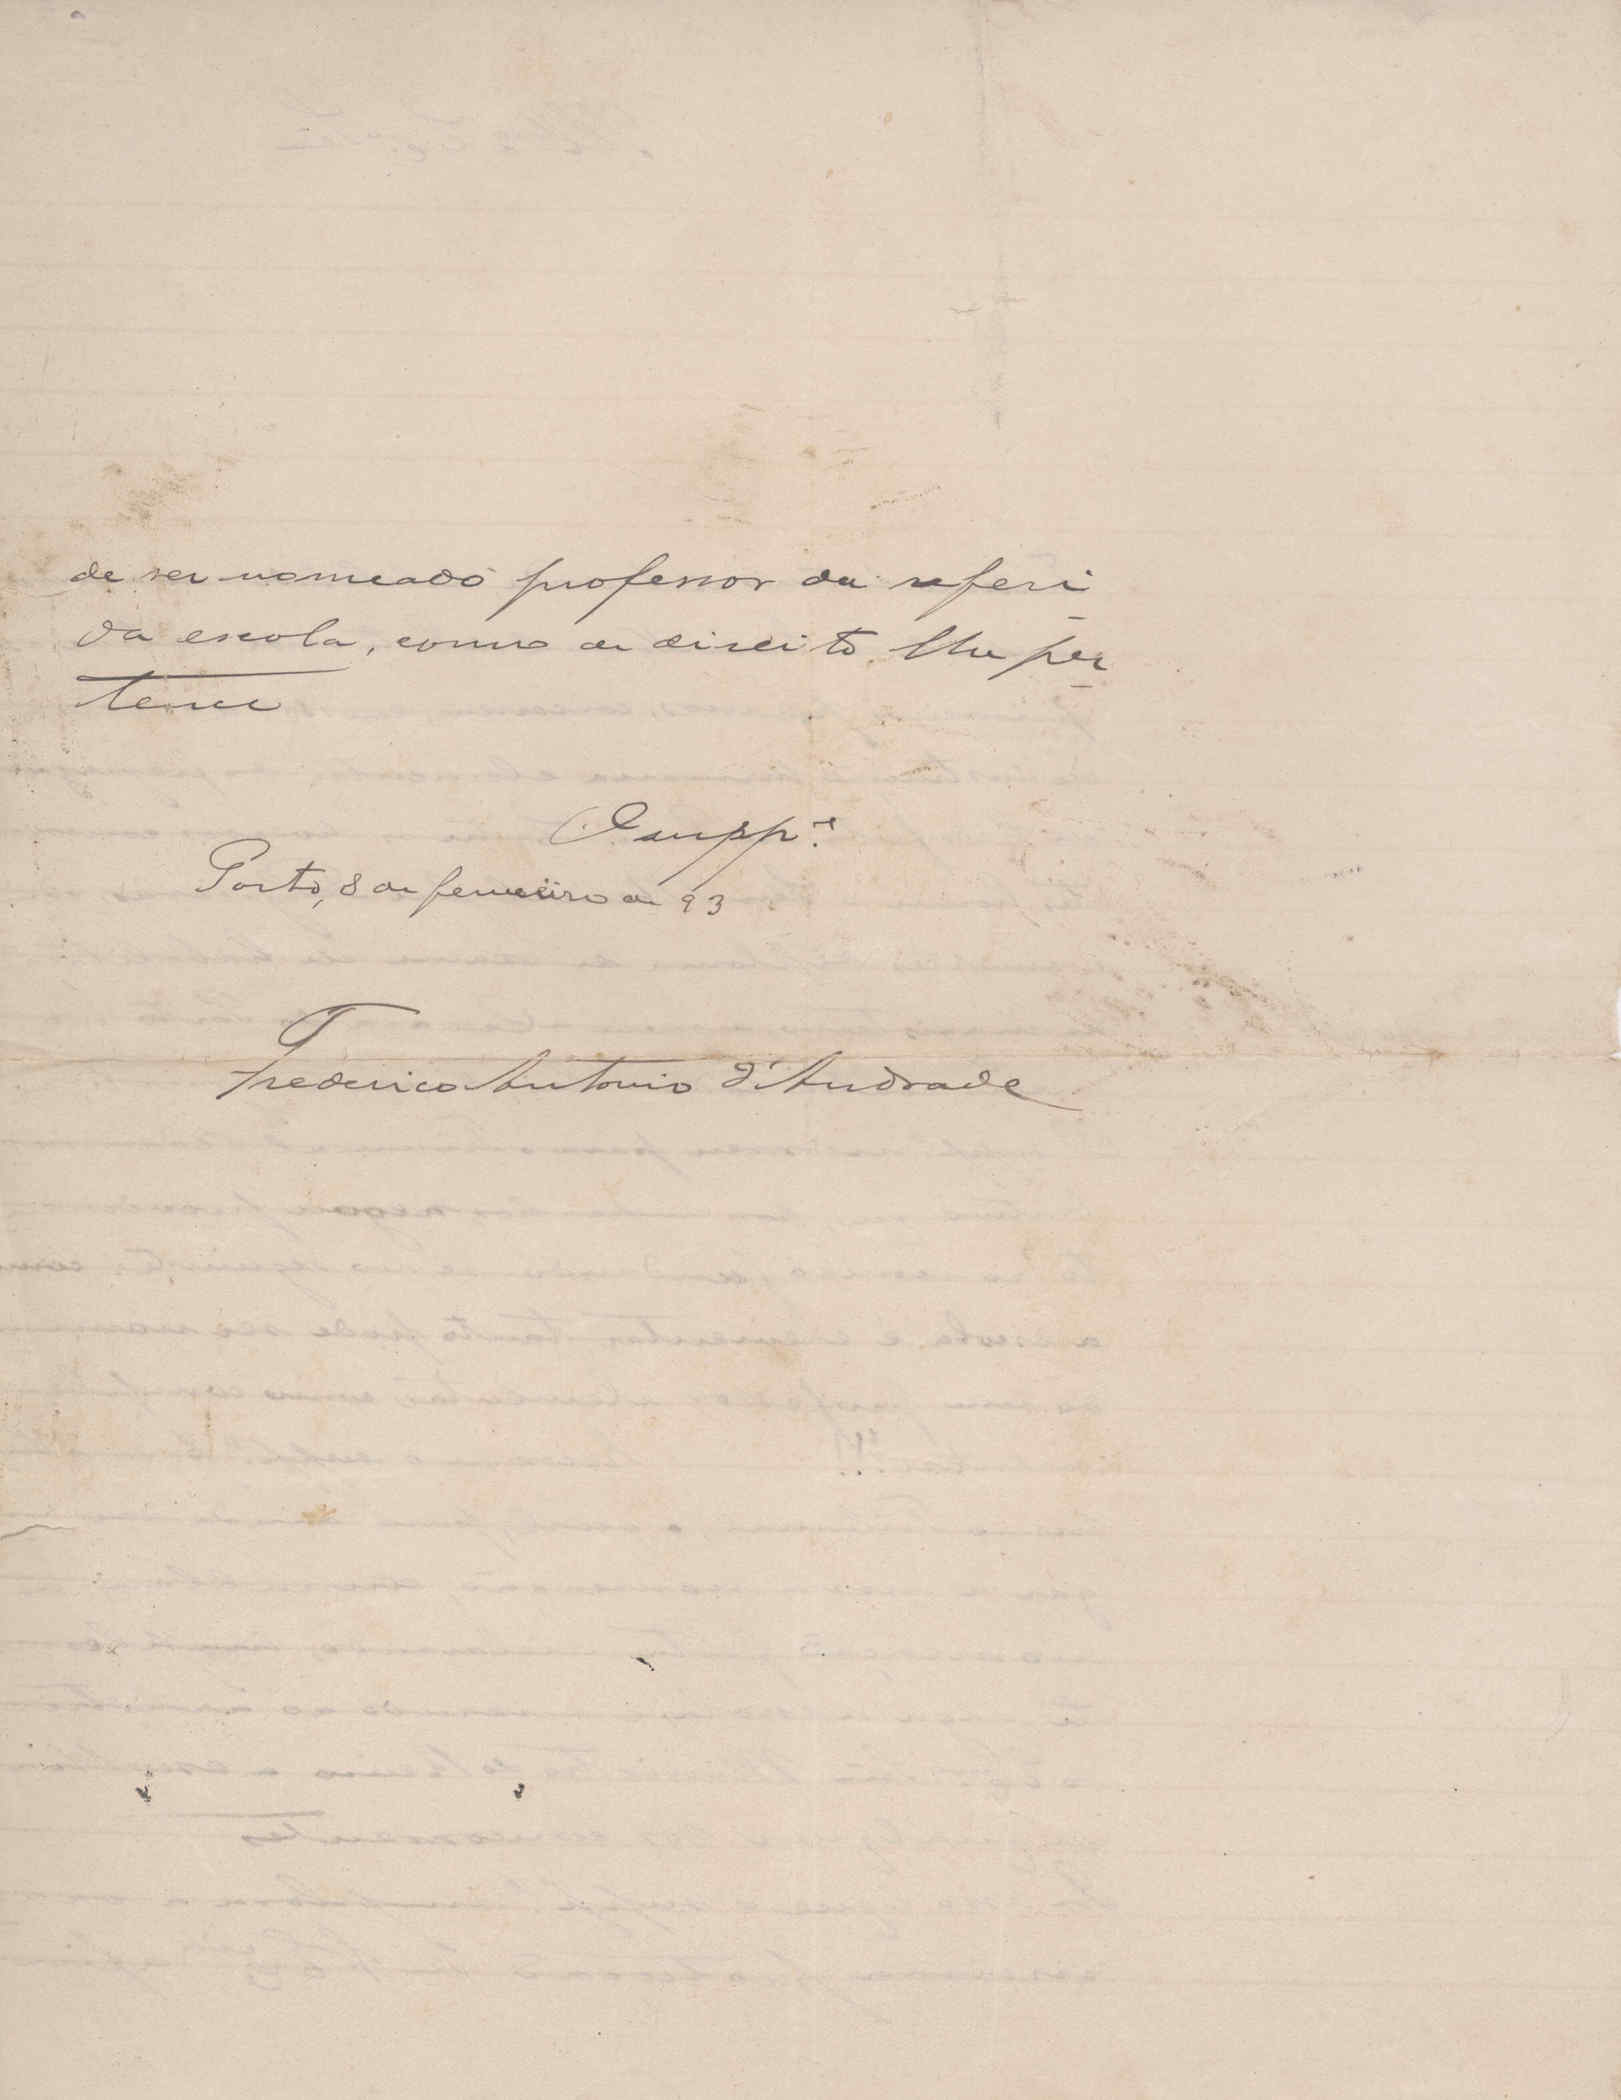 de ser nomeado professor da referi
da escola, como de direito lhe per
tence
O supp.e
Porto, 8 de fevereiro de 93
Frederico Antonio d'Andrade